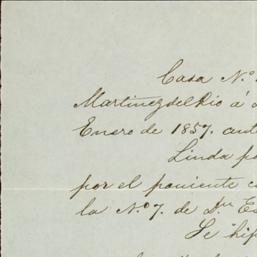 Casa N.º
Martinez del Rio á
Enero de 1857.
Linda po
por el poniente c
la N.º 7. de D.ⁿ
Se hip